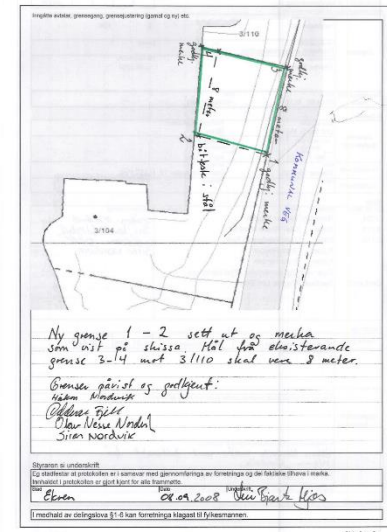 Inngåtte avtalar, grensegang, grensejustering (gamal og ny) etc.
3/110
godkj. merke
4
3
godkj. merke
8 meter
8 meter
2
1
godkj. merke
båtfeste i stål
Kommunal veg
3/104
Ny grense 1 - 2 sett ut og merka
som vist på skissa. Mål frå eksisterande
grense 3-4 mot 3/110 skal vere 8 meter.
Grenser påvist og godkjent:
Håkon Nordvik
Oddvar Fjell
Olav Nesse
Siren Nordvik
Styraren si underskrift
Eg stadfestar at protokollen er i samsvar med gjennomføringa av forretninga og dei faktiske tilhøva i marka.
Innhaldet i protokollen er gjort kjent for alle frammøtte.
Stad
Dato
Underskrift
Ekren
08.09.2008
I medhald av delingslova §1-6 kan forretninga klagast til fylkesmannen.